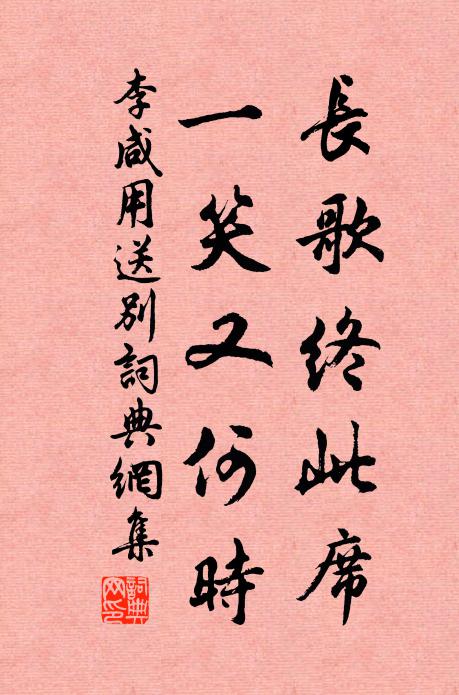 長歌終此席
一笑又何時
李咸用送別詞典網集
詞典网印